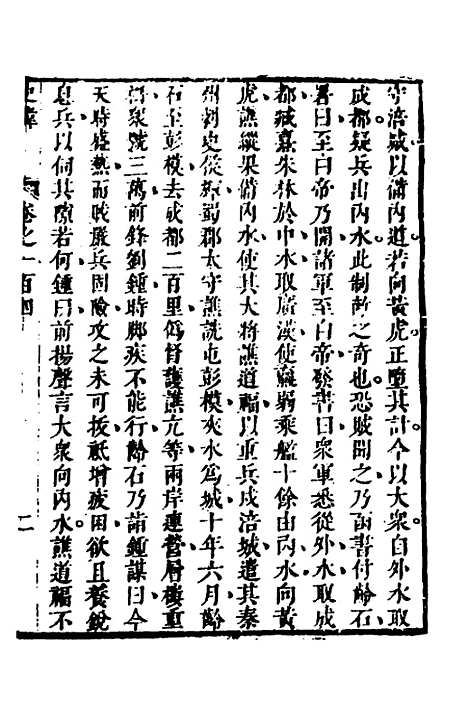 守涪城以備內道若向黃虎正墮其計今以大衆自外水取
成都疑兵出內水此制敵之奇也恐賊聞之乃函書付齡石
署曰至白帝乃開諸軍至白帝發書曰衆軍悉從外水取成
都臧熹朱林於中水取廣漢使羸弱乘艦十餘由內水向黃
虎譙縱果備內水使其大將譙道福以重兵戍涪城遣其秦
州刺史侯輝蜀郡太守譙詵屯彭模夾水爲城十年六月齡
石至彭模去成都二百里僞督護譙亢等兩岸連營層樓重
柵衆號三萬前鋒劉鍾時脚疾不能行齡石乃詣鍾謀曰今
天時盛熱而賊嚴兵固險攻之未可拔祗增疲困欲且養銳
息兵以伺其隙若何鍾曰前揚聲言大衆向內水譙道福不
史緯
卷之一百四
二